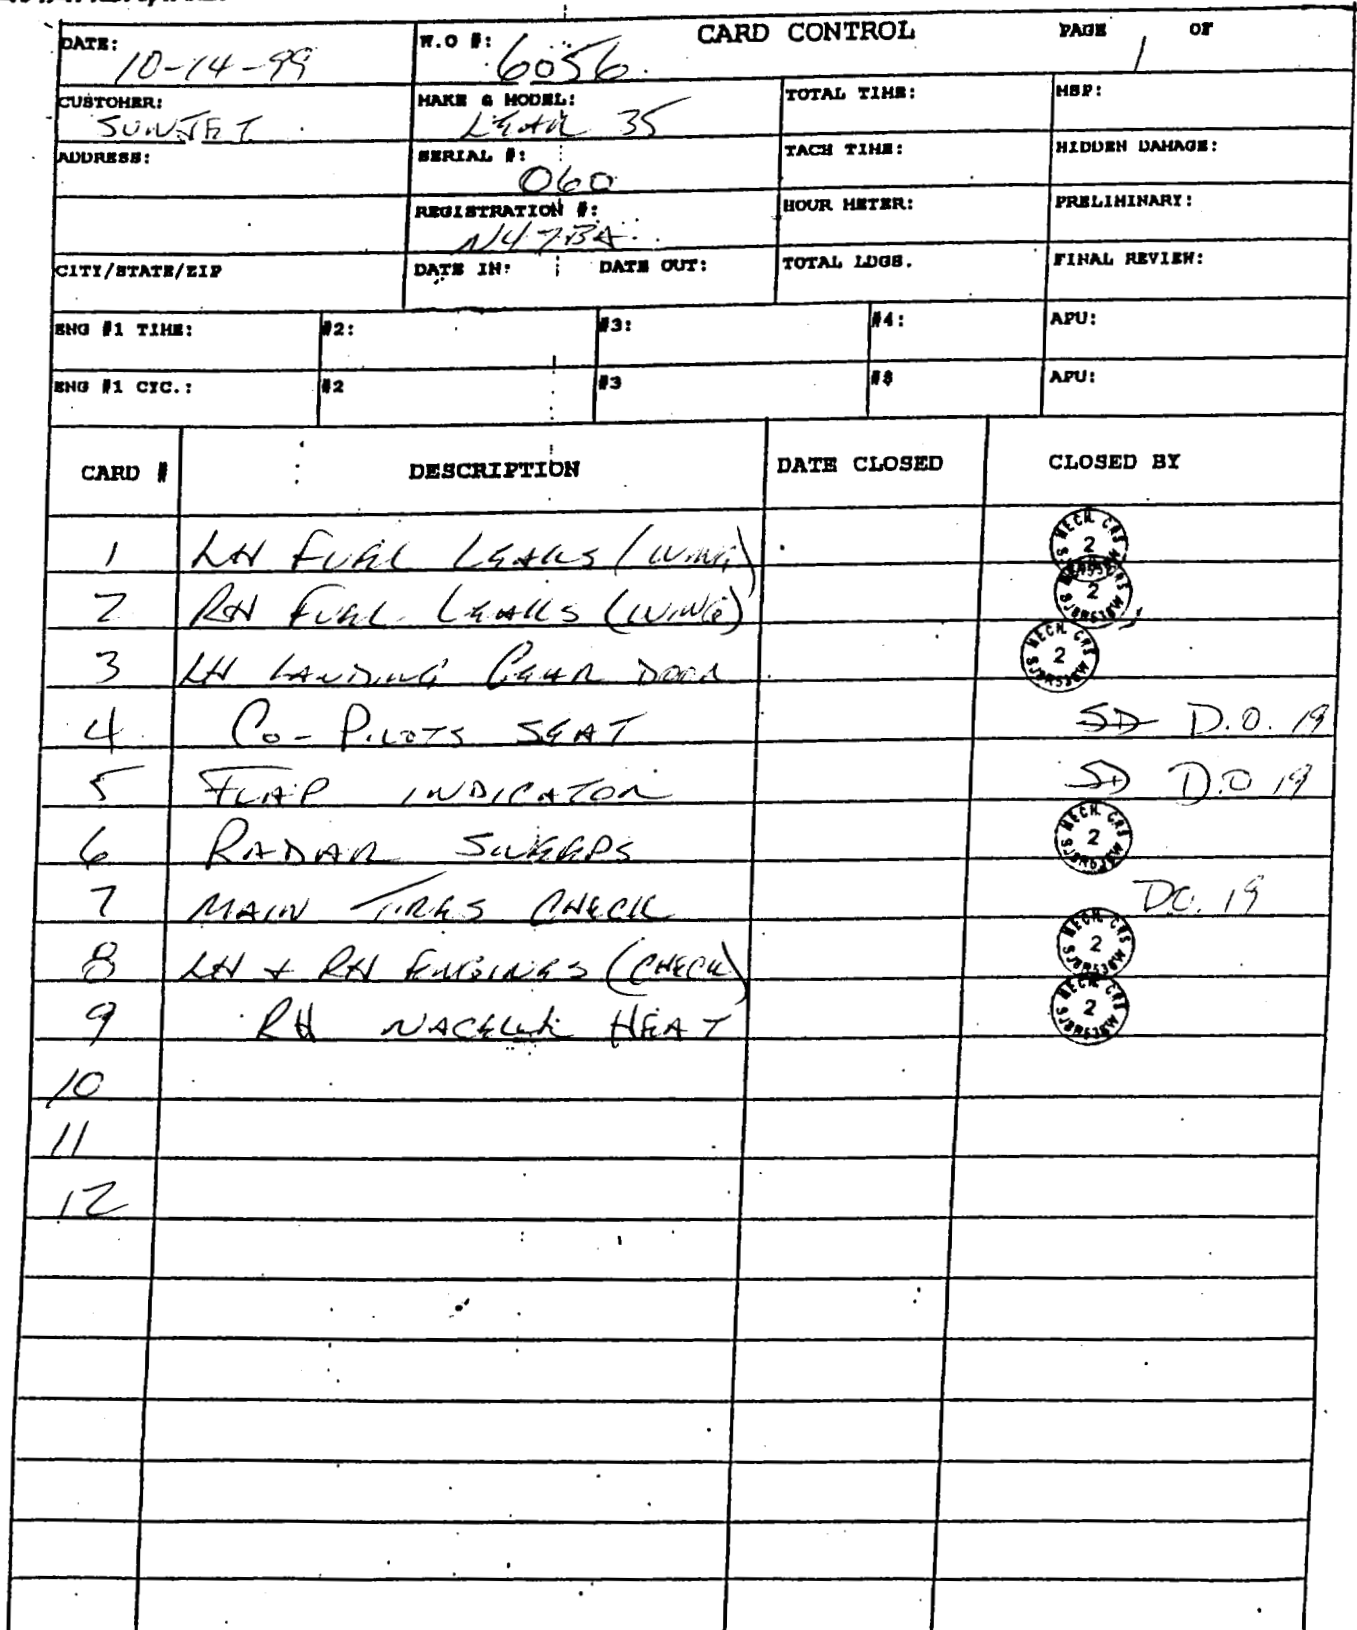 DATE: 10-14-99 W.O #: 6056 CARD CONTROL PAGE 1 OF
CUSTOMER: SUNJET MAKE & MODEL: LEAR 35 TOTAL TIME: MSP:
ADDRESS: SERIAL #: 060 TACH TIME: HIDDEN DAMAGE:
REGISTRATION #: N47BA HOUR METER: PRELIMINARY:
CITY/STATE/ZIP DATE IN: DATE OUT: TOTAL LDGS. FINAL REVIEW:
ENG #1 TIME: #2: #3: #4: APU:
ENG #1 CYC.: #2 #3 #$ APU:
CARD # DESCRIPTION DATE CLOSED CLOSED BY
1 LH FUEL LEAKS (WING) MECH. CRS 2
2 RH FUEL LEAKS (WING) 2
3 LH LANDING GEAR DOOR MECH. CRS 2
4 CO-PILOTS SEAT SD D.O. 19
5 FLAP INDICATOR SD D.O 19
6 RADAR SWEEPS MECH. CRS 2
7 MAIN TIRES CHECK D.O. 19
8 LH + RH ENGINES (CHECK) MECH. CRS 2
9 RH NACELLE HEAT MECH. CRS 2
10
11
12